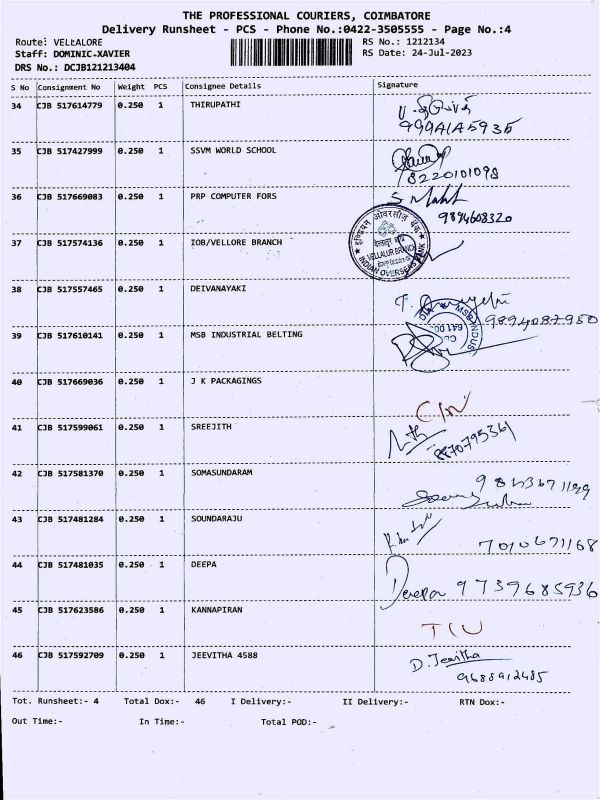 THE PROFESSIONAL COURIERS, COIMBATORE
Delivery Runsheet - PCS - Phone No.:0422-3505555 - Page No.:4
Route: VELLALORE RS No.: 1212134
Staff: DOMINIC-XAVIER RS Date: 24-Jul-2023
DRS No.: DCJB121213404
S No Consignment No Weight PCS Consignee Details Signature
34 CJB 517614779 0.250 1 THIRUPATHI
35 CJB 517427999 0.250 1 SSVM WORLD SCHOOL
8220101098
36 CJB 517669083 0.250 1 PRP COMPUTER FORS
9894608320
37 CJB 517574136 0.250 1 IOB/VELLORE BRANCH
इण्डियन ओवरसीज़ बैंक
VELLALUR BRANCH
INDIAN OVERSEAS BANK
38 CJB 517557465 0.250 1 DEIVANAYAKI
9894087950
39 CJB 517610141 0.250 1 MSB INDUSTRIAL BELTING
MSB INDUS
40 CJB 517669036 0.250 1 J K PACKAGINGS
41 CJB 517599061 0.250 1 SREEJITH
42 CJB 517581370 0.250 1 SOMASUNDARAM
43 CJB 517481284 0.250 1 SOUNDARAJU
7010671168
44 CJB 517481035 0.250 1 DEEPA
Deepa 9739685936
45 CJB 517623586 0.250 1 KANNAPIRAN
46 CJB 517592709 0.250 1 JEEVITHA 4588
D. Jeevitha
9688912485
Tot. Runsheet:- 4 Total Dox:- 46 I Delivery:- II Delivery:- RTN Dox:-
Out Time:- In Time:- Total POD:-